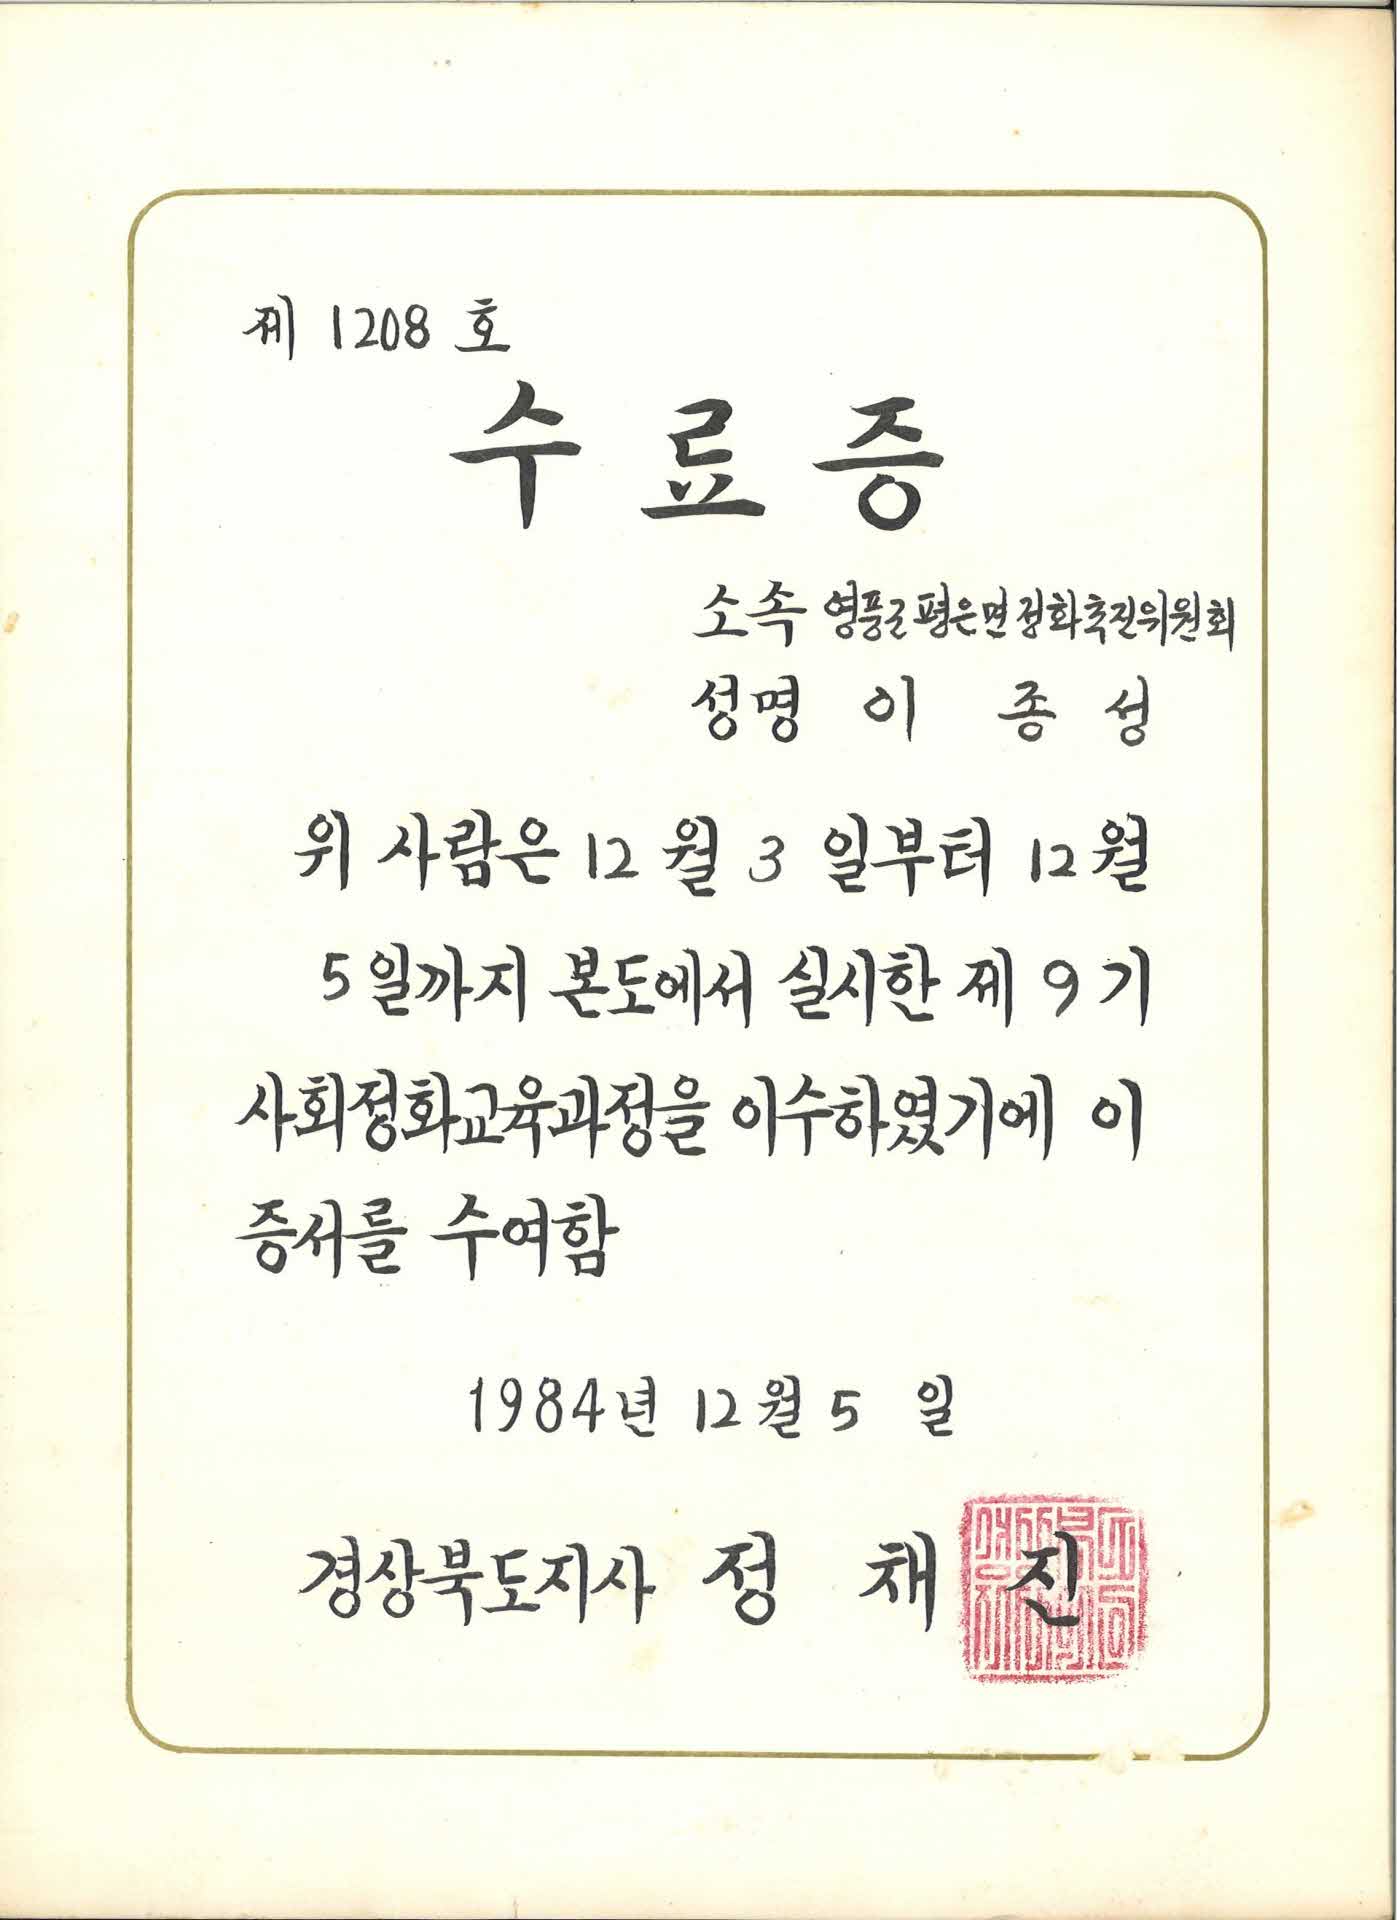 제 1208 호
수료증
소속 영풍군 평은면 정화추진위원회
성명 이 종 성
위 사람은 12 월 3 일부터 12월
5일까지 본도에서 실시한 제 9 기
사회정화교육과정을 이수하였기에 이
증서를 수여함
1984년 12월 5 일
경상북도지사 정 채 진